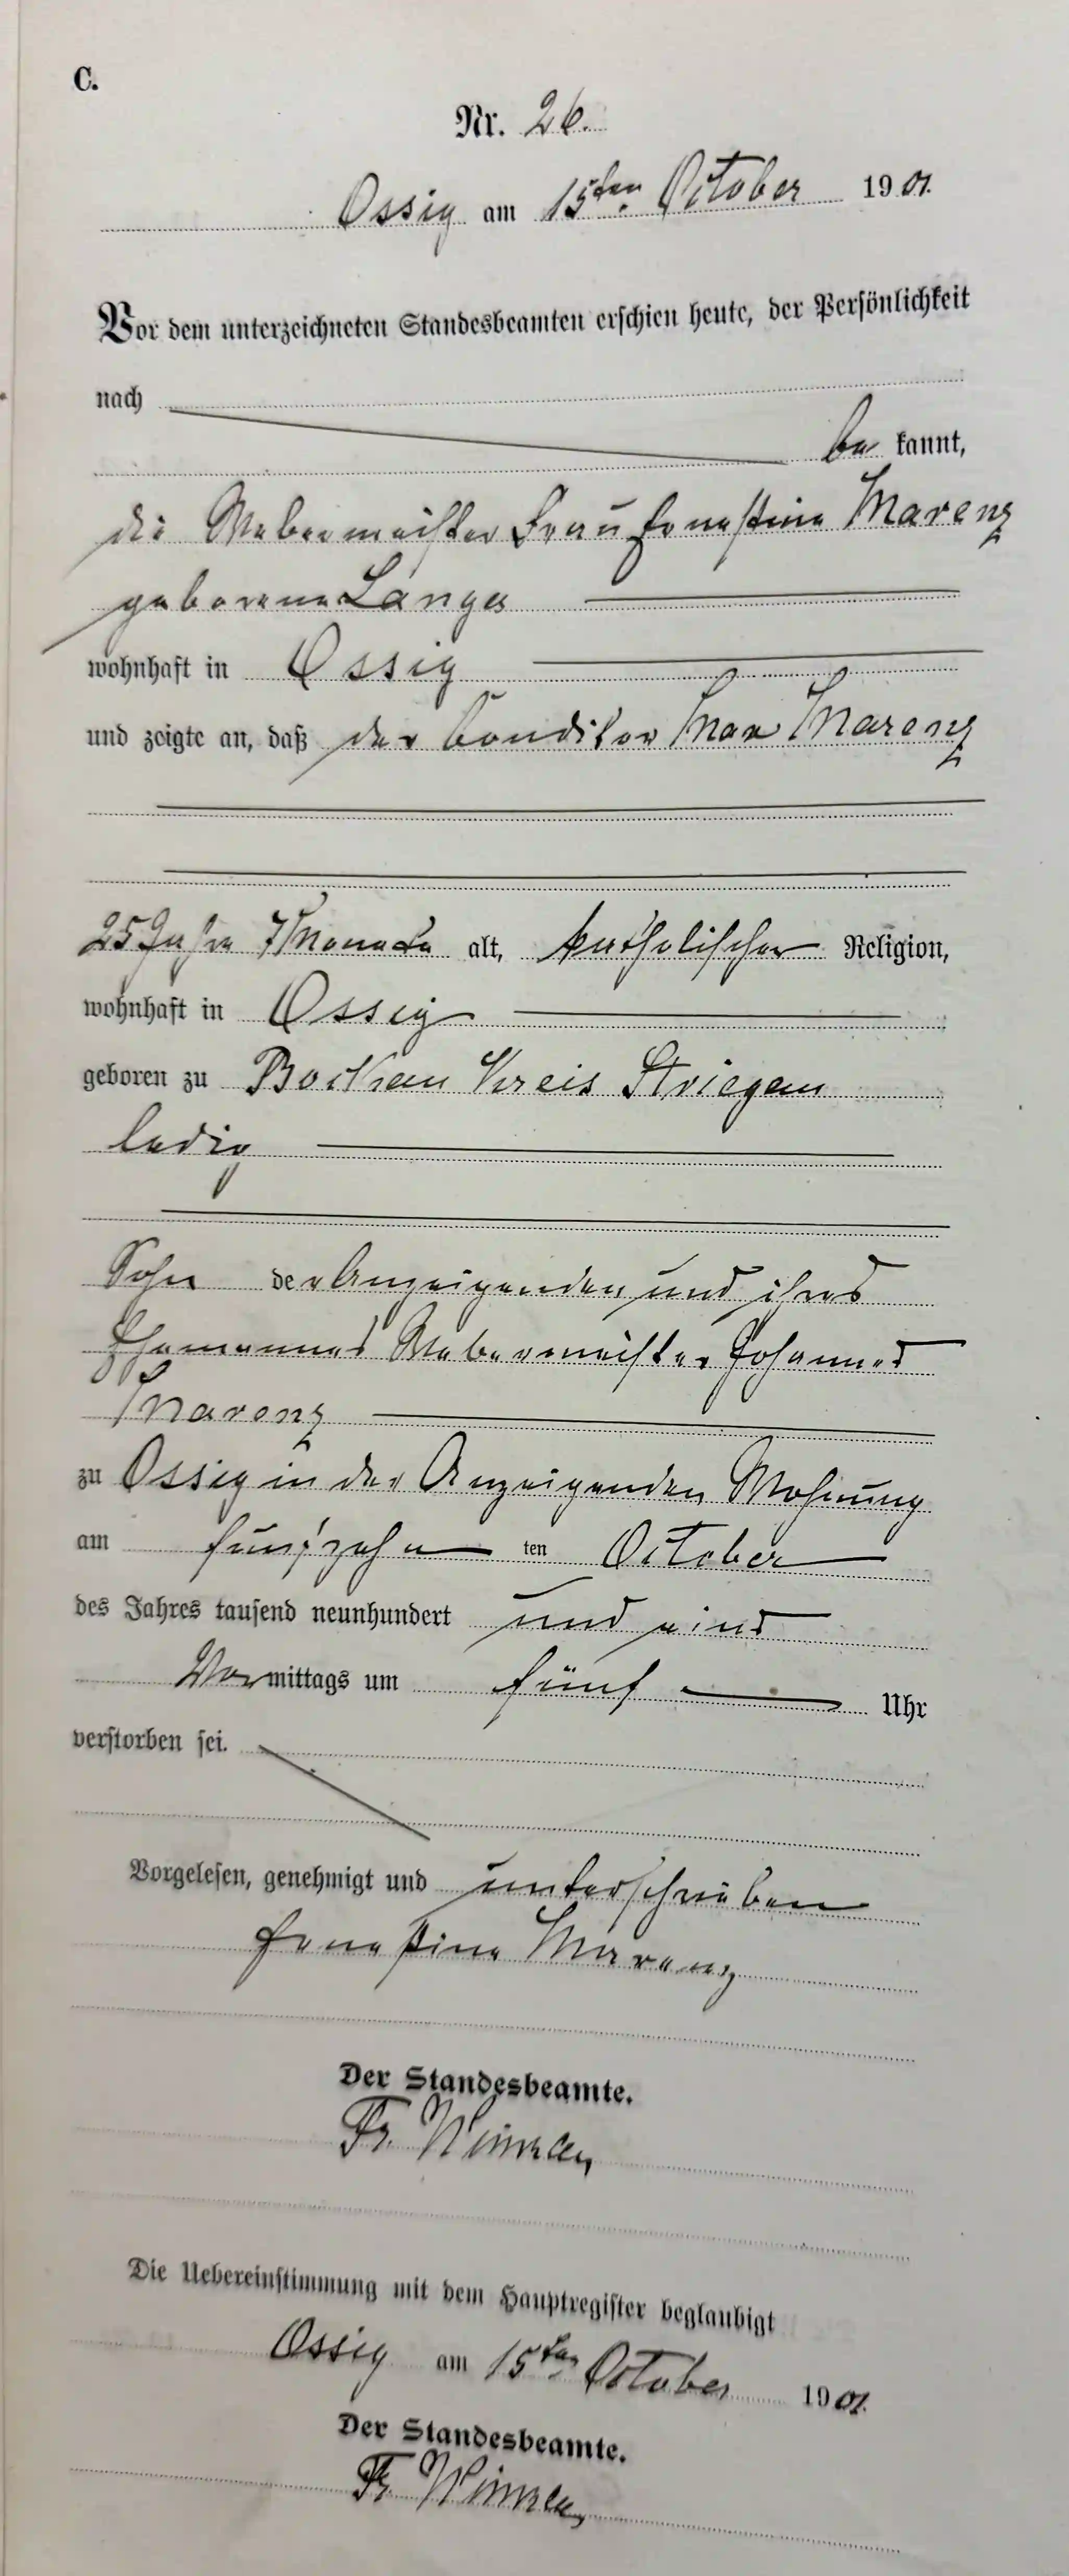 C.
Nr. 26.
Ossig am 15ten October 1901.
Vor dem unterzeichneten Standesbeamten erschien heute, der Persönlichkeit
nach
be kannt,
die Webermeister Frau Ernestine Marenz
geborene Lange
wohnhaft in Ossig
und zeigte an, daß der Conditor Max Marenz
25 Jahre 7 Monate alt, katholischer Religion,
wohnhaft in Ossig
geboren zu Bockau Kreis Striegau
ledig
Sohn der Anzeigenden und ihres
Ehemannes Webermeister Johannes
Marenz
zu Ossig in der Anzeigenden Wohnung
am fünfzehn ten October
des Jahres tausend neunhundert und eins
Vormittags um fünf Uhr
verstorben sei.
Vorgelesen, genehmigt und unterschrieben
Ernestine Marenz
Der Standesbeamte.
Fr.
Die Uebereinstimmung mit dem Hauptregister beglaubigt
Ossig am 15ten October 1901.
Der Standesbeamte.
Fr.